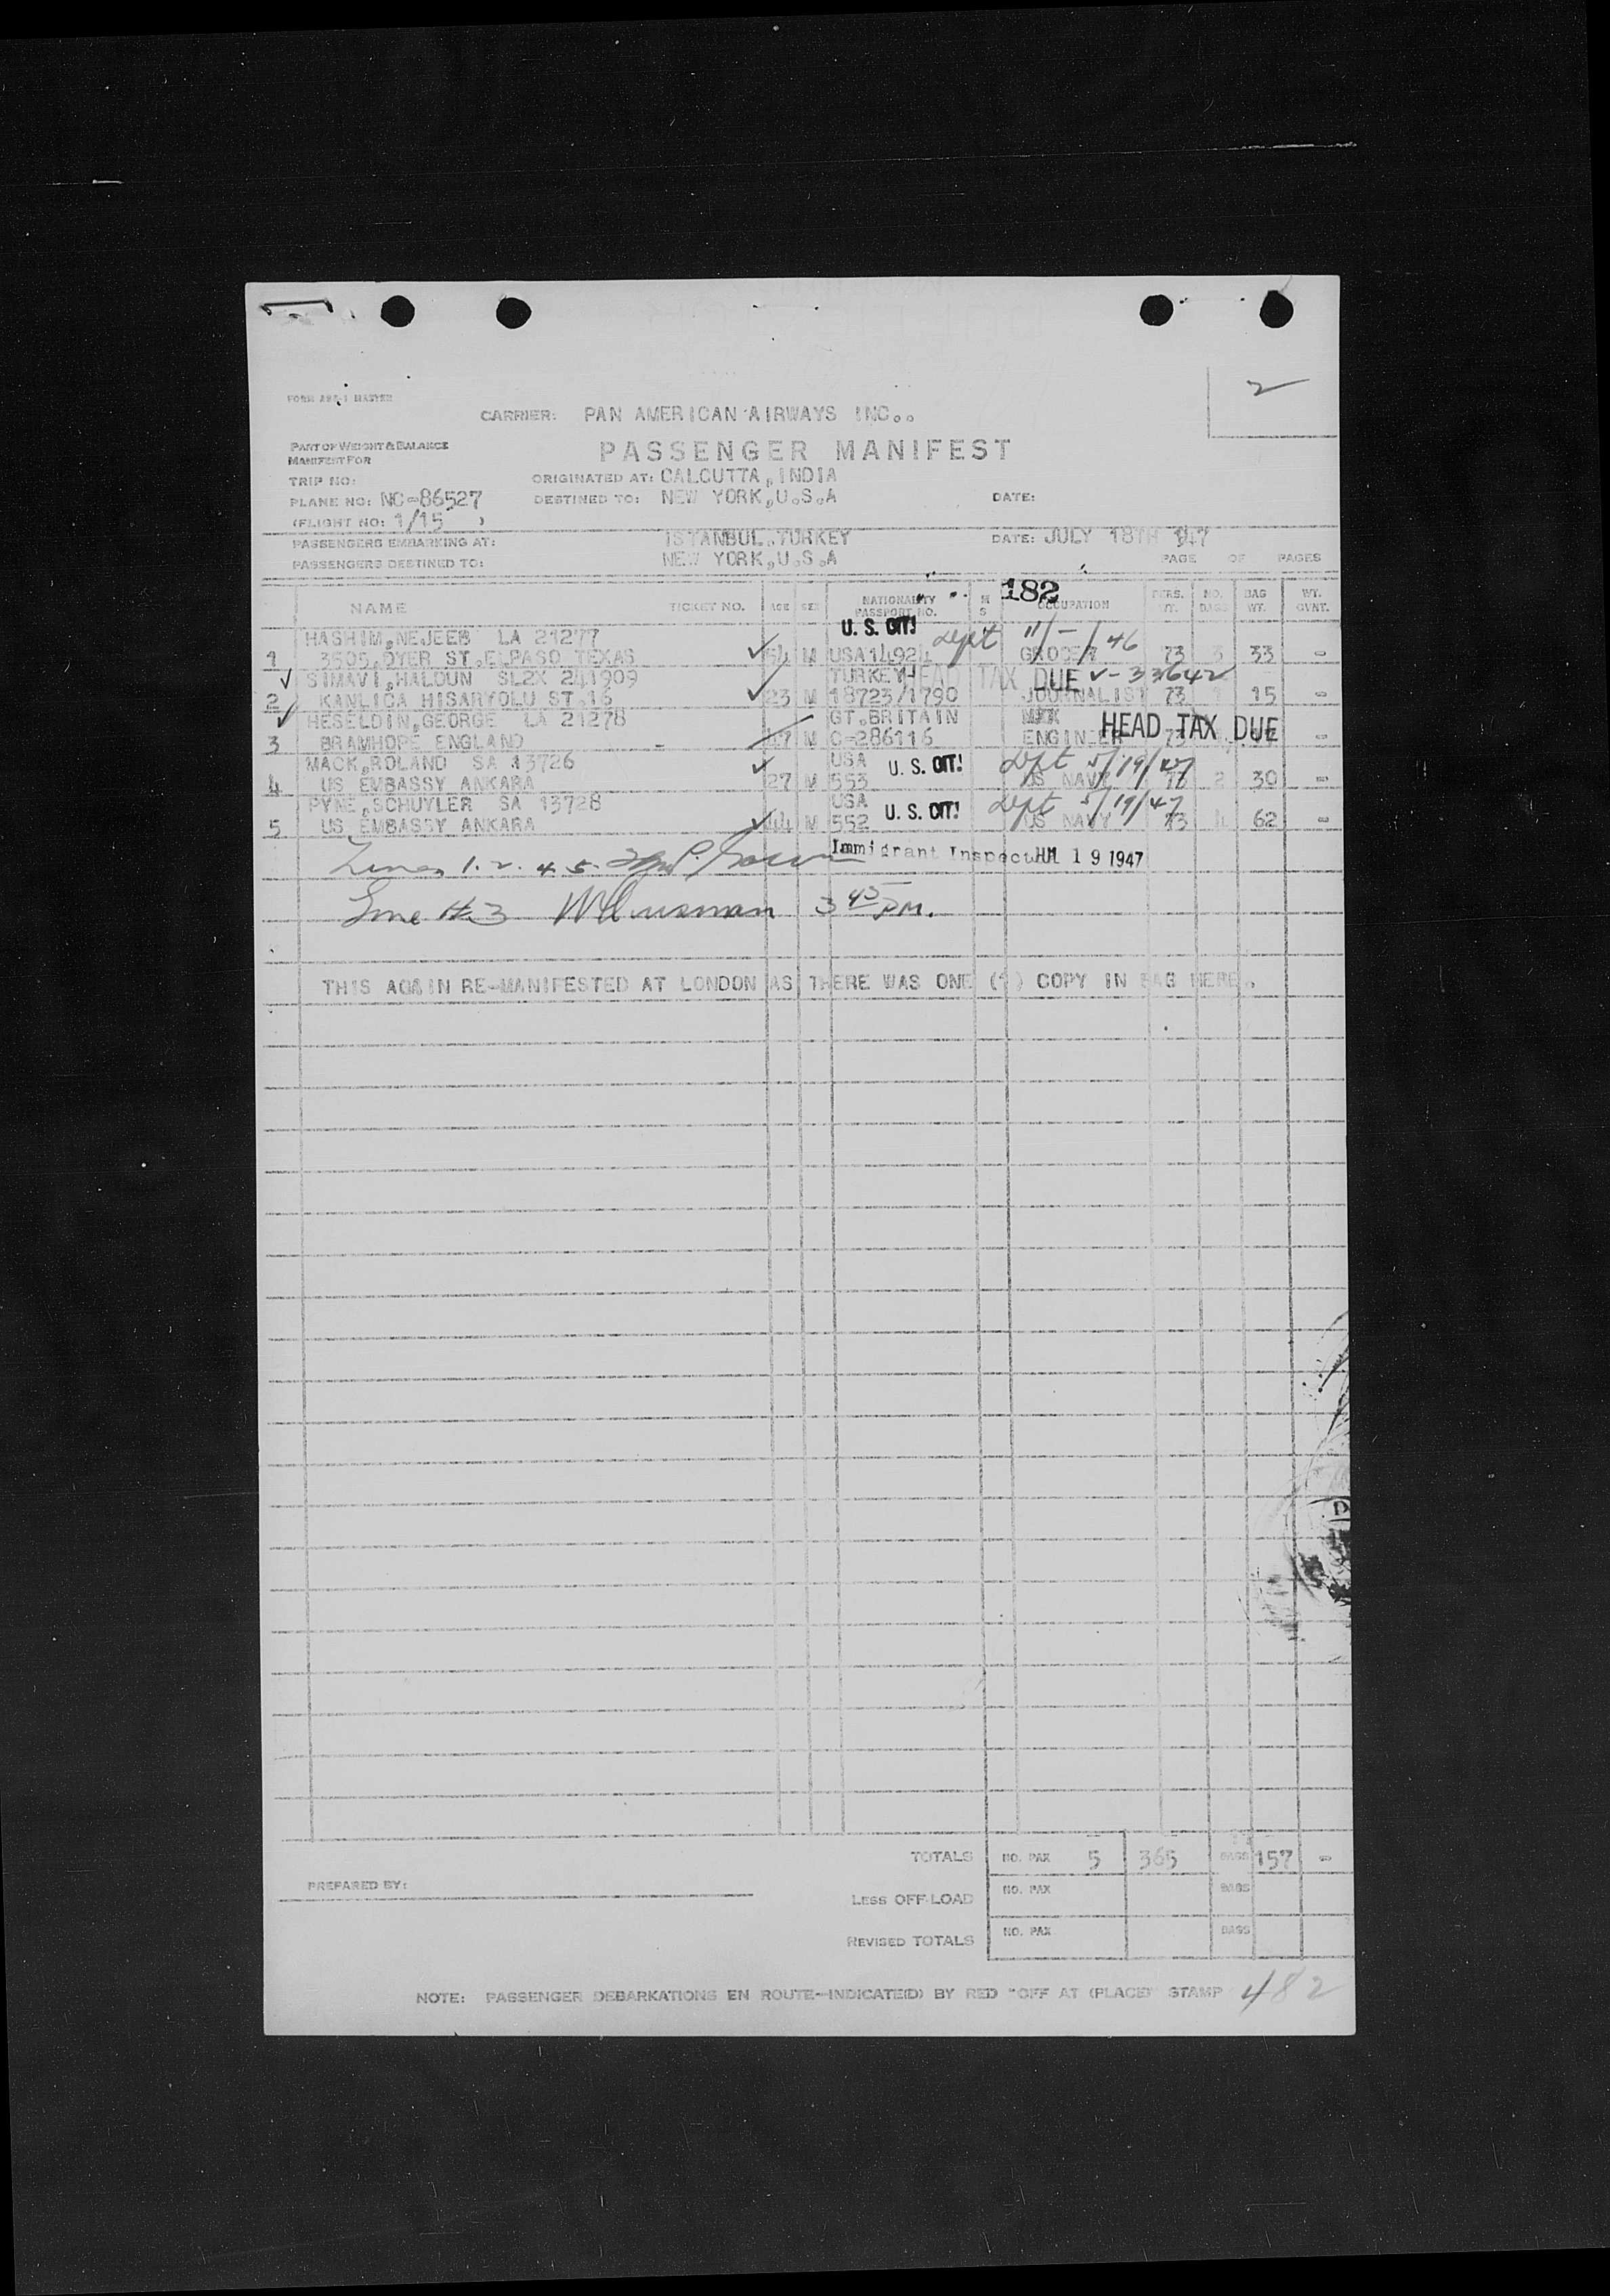 2
CARRIER: PAN AMERICAN AIRWAYS INC..
PART OF WEIGHT & BALANCE
MANIFEST FOR
PASSENGER MANIFEST
TRIP NO:
ORIGINATED AT: CALCUTTA,INDIA
PLANE NO: NC-86527
DESTINED TO: NEW YORK,U.S.A
DATE:
(FLIGHT NO: 1/15 )
PASSENGERS EMBARKING AT: ISTANBUL.TURKEY DATE: JULY 18TH 947
PASSENGERS DESTINED TO: NEW YORK,U.S.A PAGE OF PAGES
182
NAME TICKET NO. AGE SEX NATIONALITY PASSPORT NO. M S OCCUPATION PERS. WT. NO. BAGS BAG WT. WT. GVNT.
HASHIM,NEJEEB LA 21277 U. S. CIT! Dept 11/-/46
1 3505,DYER ST.ELPASO TEXAS 54 M USA14924 GROCER 73 3 33 -
SIMAVI,HALDUN SL2X 241909 TURKEY HEAD TAX DUE V-33642
2 KANLICA HISARYOLU ST.16 23 M 18723/1790 JOURNALIST 73 1 15 -
HESELDIN,GEORGE LA 21278 GT.BRITAIN
3 BRAMHOPE ENGLAND 47 M C-286116 ENGINEER HEAD TAX DUE 73 -
MACK,ROLAND SA 13726 USA U. S. CIT! Dept 5/19/47
4 US EMBASSY ANKARA 27 M 553 US NAVY 73 2 30 -
PYNE,SCHUYLER SA 13728 USA U. S. CIT! Dept 5/19/47
5 US EMBASSY ANKARA 44 M 552 US NAVY 73 4 62 -
Lines 1. 2. 4. 5. Immigrant Inspector 19 1947
Line # 3 3 45 PM.
THIS AGAIN RE-MANIFESTED AT LONDON AS THERE WAS ONE (1) COPY IN BAG HERE.
TOTALS NO. PAX 5 365 BAGS 157 -
PREPARED BY:
LESS OFF-LOAD NO. PAX BAGS
REVISED TOTALS NO. PAX BAGS
NOTE: PASSENGER DEBARKATIONS EN ROUTE-INDICATE(D) BY RED "OFF AT (PLACE)" STAMP 482